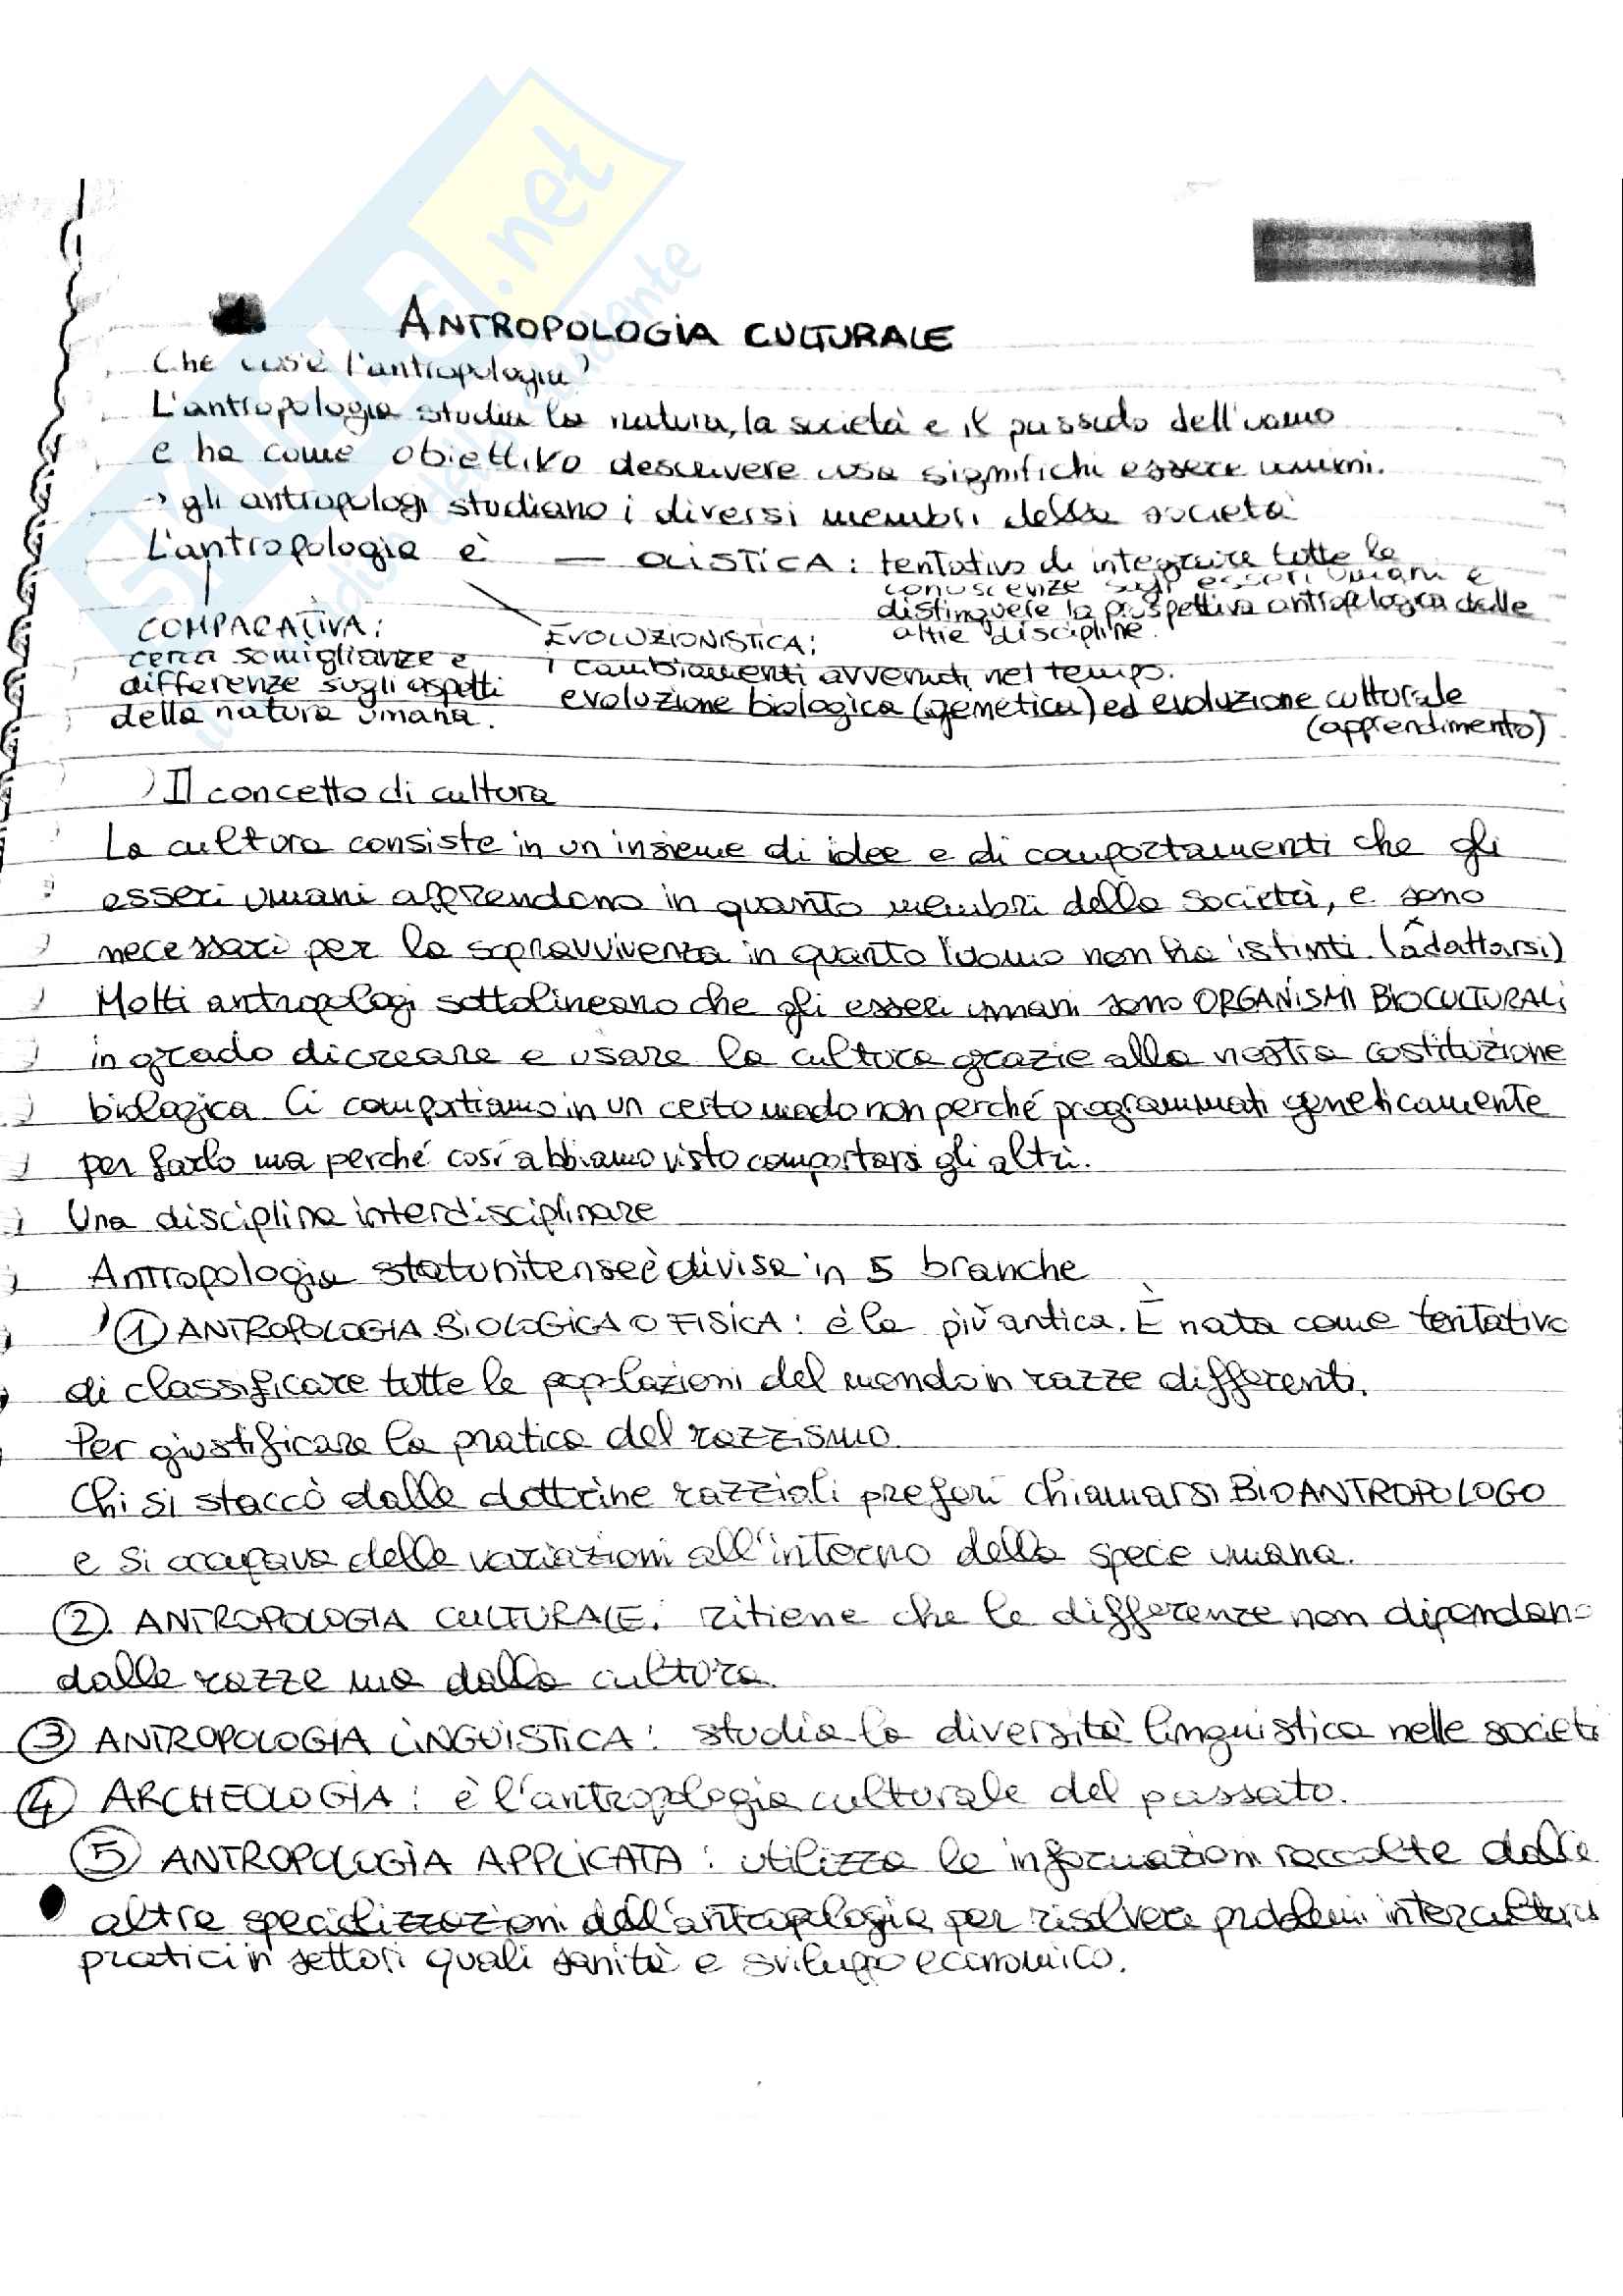 ANTROPOLOGIA CULTURALE
Che cos'è l'antropologia?
L'antropologia studia la natura, la società e il passato dell'uomo
e ha come obiettivo descrivere cosa significhi essere umani.
→ gli antropologi studiano i diversi membri della società
L'antropologia è — OLISTICA: tentativo di integrare tutte le
conoscenze sugli esseri umani e
distinguere la prospettiva antropologica dalle
altre discipline.
COMPARATIVA:
cerca somiglianze e
differenze sugli aspetti
della natura umana.
EVOLUZIONISTICA:
i cambiamenti avvenuti nel tempo.
evoluzione biologica (genetica) ed evoluzione culturale
(apprendimento)
Il concetto di cultura
La cultura consiste in un insieme di idee e di comportamenti che gli
esseri umani apprendono in quanto membri della società, e sono
necessari per la sopravvivenza in quanto l'uomo non ha istinti. (adattarsi)
Molti antropologi sottolineano che gli esseri umani sono ORGANISMI BIOCULTURALI
in grado di creare e usare la cultura grazie alla nostra costituzione
biologica. Ci comportiamo in un certo modo non perché programmati geneticamente
per farlo ma perché così abbiamo visto comportarsi gli altri.
Una disciplina interdisciplinare
Antropologia statunitense è divisa in 5 branche
① ANTROPOLOGIA BIOLOGICA O FISICA: è la più antica. È nata come tentativo
di classificare tutte le popolazioni del mondo in razze differenti.
Per giustificare la pratica del razzismo
Chi si staccò dalle dottrine razziali preferì chiamarsi BIOANTROPOLOGO
e si occupava delle variazioni all'interno della specie umana.
② ANTROPOLOGIA CULTURALE: ritiene che le differenze non dipendano
dalle razze ma dalla cultura.
③ ANTROPOLOGIA LINGUISTICA: studia la diversità linguistica nelle societ
④ ARCHEOLOGIA: è l'antropologia culturale del passato.
⑤ ANTROPOLOGIA APPLICATA: utilizza le informazioni raccolte dalle
altre specializzazioni dell'antropologia per risolvere problemi intercultura
pratici in settori quali sanità e sviluppo economico.
SKUOLA.net